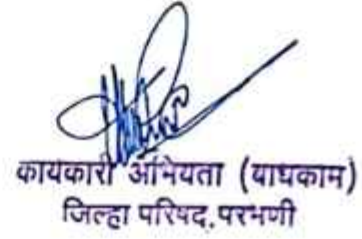 कार्यकारी अभियंता (बांधकाम)
जिल्हा परिषद, परभणी